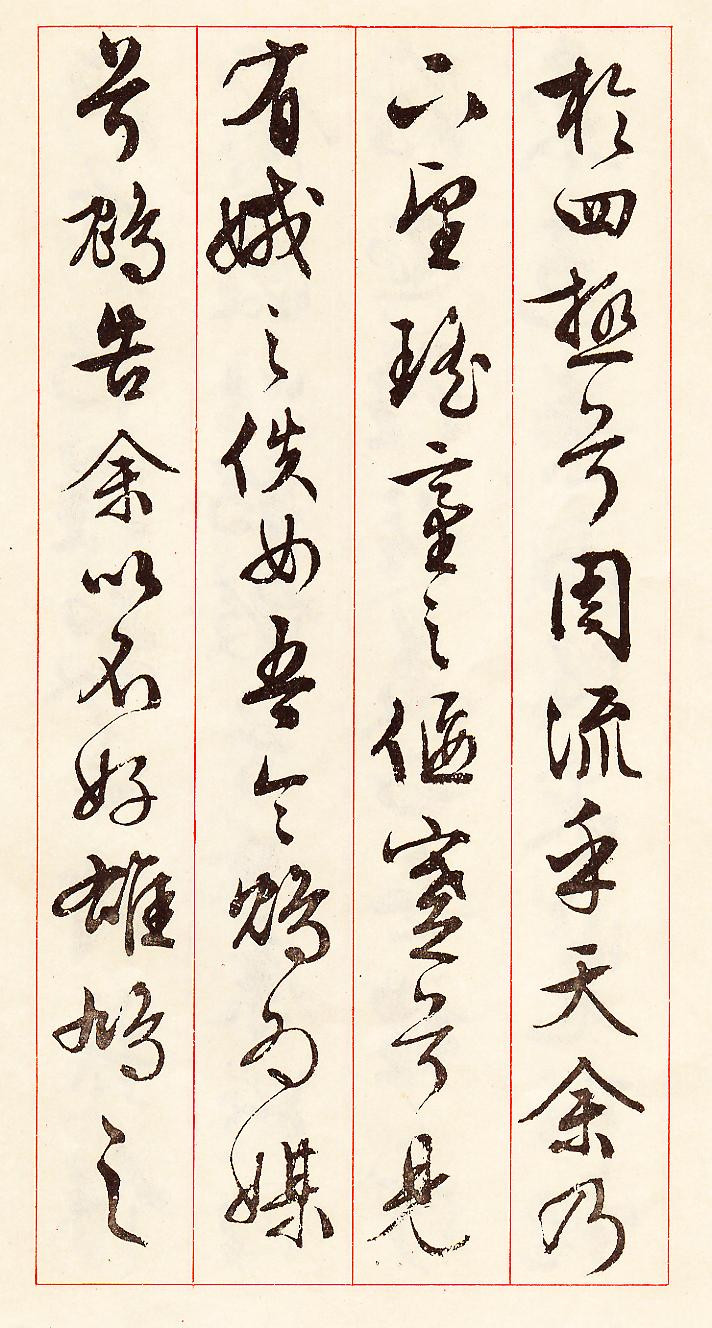 於四極兮周流乎天余乃
下望瑤臺之偃蹇兮見
有娀之佚女吾令鴆為媒
兮鴆告余以不好雄鳩之